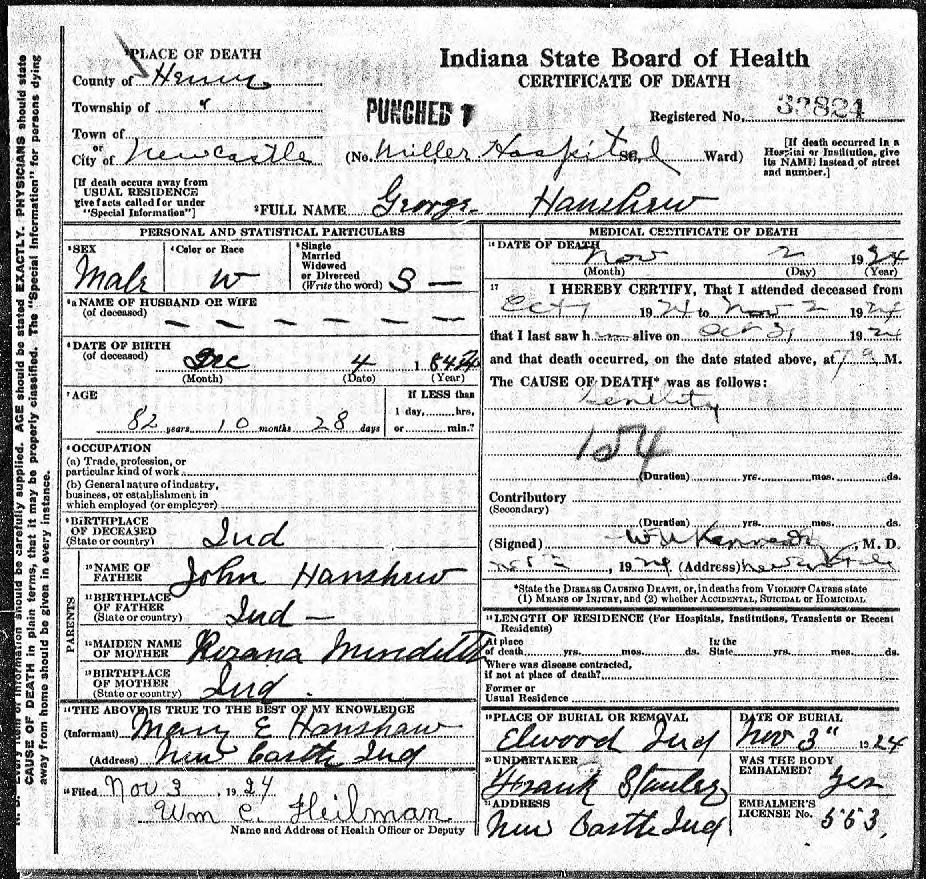 Indiana State Board of Health
CERTIFICATE OF DEATH
PLACE OF DEATH
County of Henry
Township of
Town of
or
City of Newcastle
PUNCHED
Registered No. 33824
(No. Miller Hospital St., Ward)
[If death occurred in a Hospital or Institution, give its NAME instead of street and number.]
[If death occurs away from USUAL RESIDENCE give facts called for under "Special Information"]
²FULL NAME George Hanshew
PERSONAL AND STATISTICAL PARTICULARS
³SEX Male
⁴Color or Race W
⁵Single Married Widowed or Divorced (Write the word) S —
⁵ᵃNAME OF HUSBAND OR WIFE
(of deceased) — — — — — —
⁶DATE OF BIRTH
(of deceased) Dec 4
(Month) (Date) (Year)
⁷AGE
82 years 10 months 28 days
If LESS than
1 day,......hrs,
or......min.?
⁸OCCUPATION
(a) Trade, profession, or
particular kind of work
(b) General nature of industry,
business, or establishment in
which employed (or employer)
⁹BIRTHPLACE
OF DECEASED
(State or country) Ind
PARENTS
¹⁰NAME OF
FATHER John Hanshew
¹¹BIRTHPLACE
OF FATHER
(State or country) Ind —
¹²MAIDEN NAME
OF MOTHER
¹³BIRTHPLACE
OF MOTHER
(State or country) Ind.
¹⁴THE ABOVE IS TRUE TO THE BEST OF MY KNOWLEDGE
(Informant) Mary E Hanshaw
(Address) New Castle Ind
¹⁵Filed Nov 3, 1924
Wm C. Heilman
Name and Address of Health Officer or Deputy
MEDICAL CERTIFICATE OF DEATH
¹⁶DATE OF DEATH
Nov 2 1924
(Month) (Day) (Year)
¹⁷ I HEREBY CERTIFY, That I attended deceased from
1924 to Nov 2 1924
that I last saw h alive on Oct 31 1924
and that death occurred, on the date stated above, at M.
The CAUSE OF DEATH* was as follows:
Senility
154
(Duration) yrs. mos. ds.
Contributory
(Secondary)
(Duration) yrs. mos. ds.
(Signed) Kennedy, M. D.
, 1924 (Address) Newcastle
*State the DISEASE CAUSING DEATH, or, in deaths from VIOLENT CAUSES state
(1) MEANS OF INJURY, and (2) whether ACCIDENTAL, SUICIDAL or HOMICIDAL
¹⁸LENGTH OF RESIDENCE (For Hospitals, Institutions, Transients or Recent
Residents)
At place
of death......yrs......mos......ds. In the State......yrs......mos......ds.
Where was disease contracted,
if not at place of death?
Former or
Usual Residence
¹⁹PLACE OF BURIAL OR REMOVAL
Elwood Ind
DATE OF BURIAL
Nov 3" 1924
²⁰UNDERTAKER
Frank Stanley
WAS THE BODY
EMBALMED? Yes
²¹ADDRESS
New Castle Ind
EMBALMER'S
LICENSE No. 553.
Every item of information should be carefully supplied. AGE should be stated EXACTLY. PHYSICIANS should state
CAUSE OF DEATH in plain terms, that it may be properly classified. The "Special Information" for persons dying
away from home should be given in every instance.